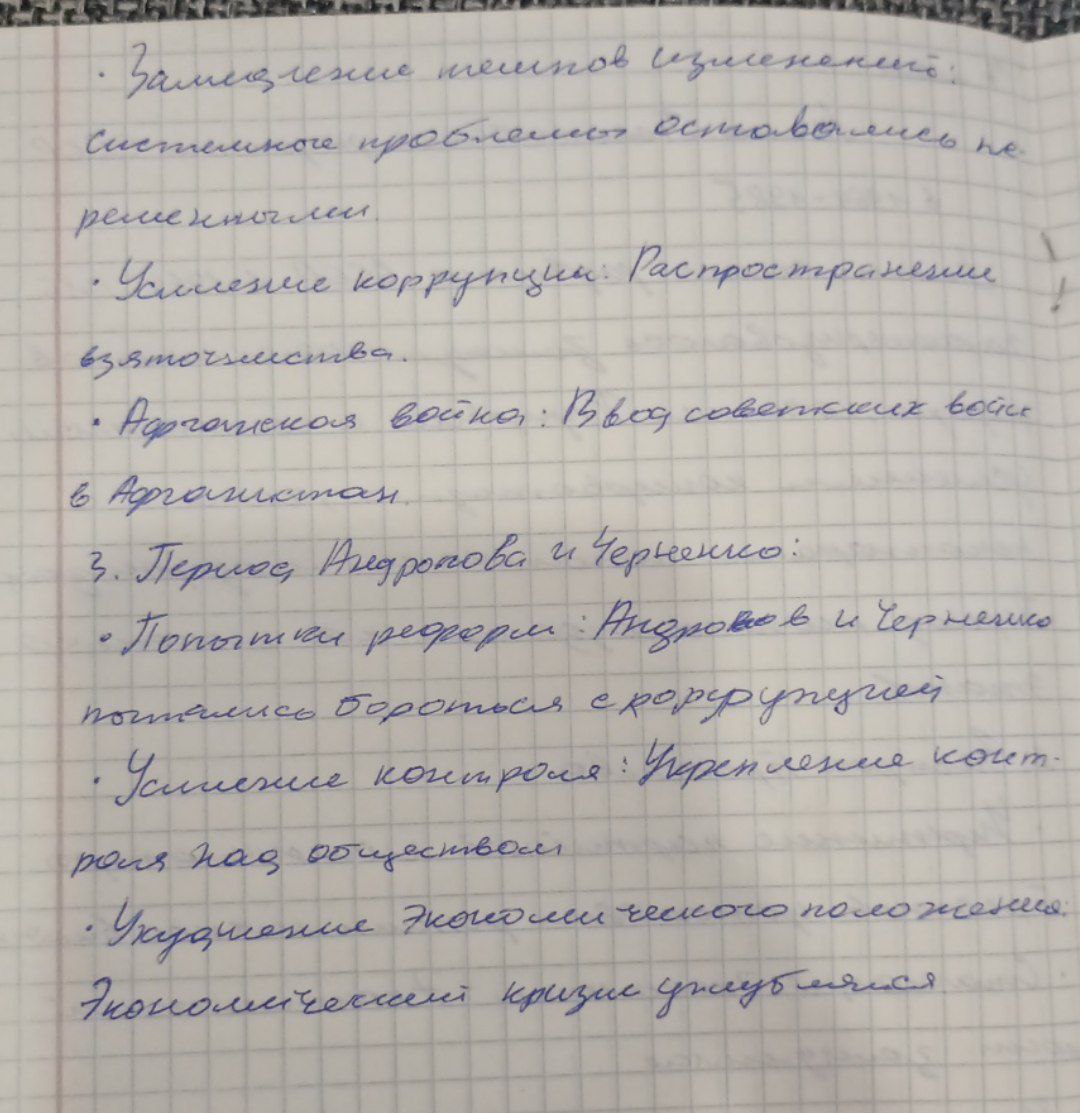 · Замедление темпов изменений:
системные проблемы оставались не-
решенными.
· Усиление коррупции: Распространении
взяточничества.
· Афганская война: Ввод советских войск
в Афганистан.
3. Период Андропова и Черненко:
· Попытки реформ: Андропов и Черненко
пытались бороться с коррупцией
· Усиление контроля: Укрепление конт-
роля над обществом
· Ухудшение экономического положения:
Экономический кризис углублялся